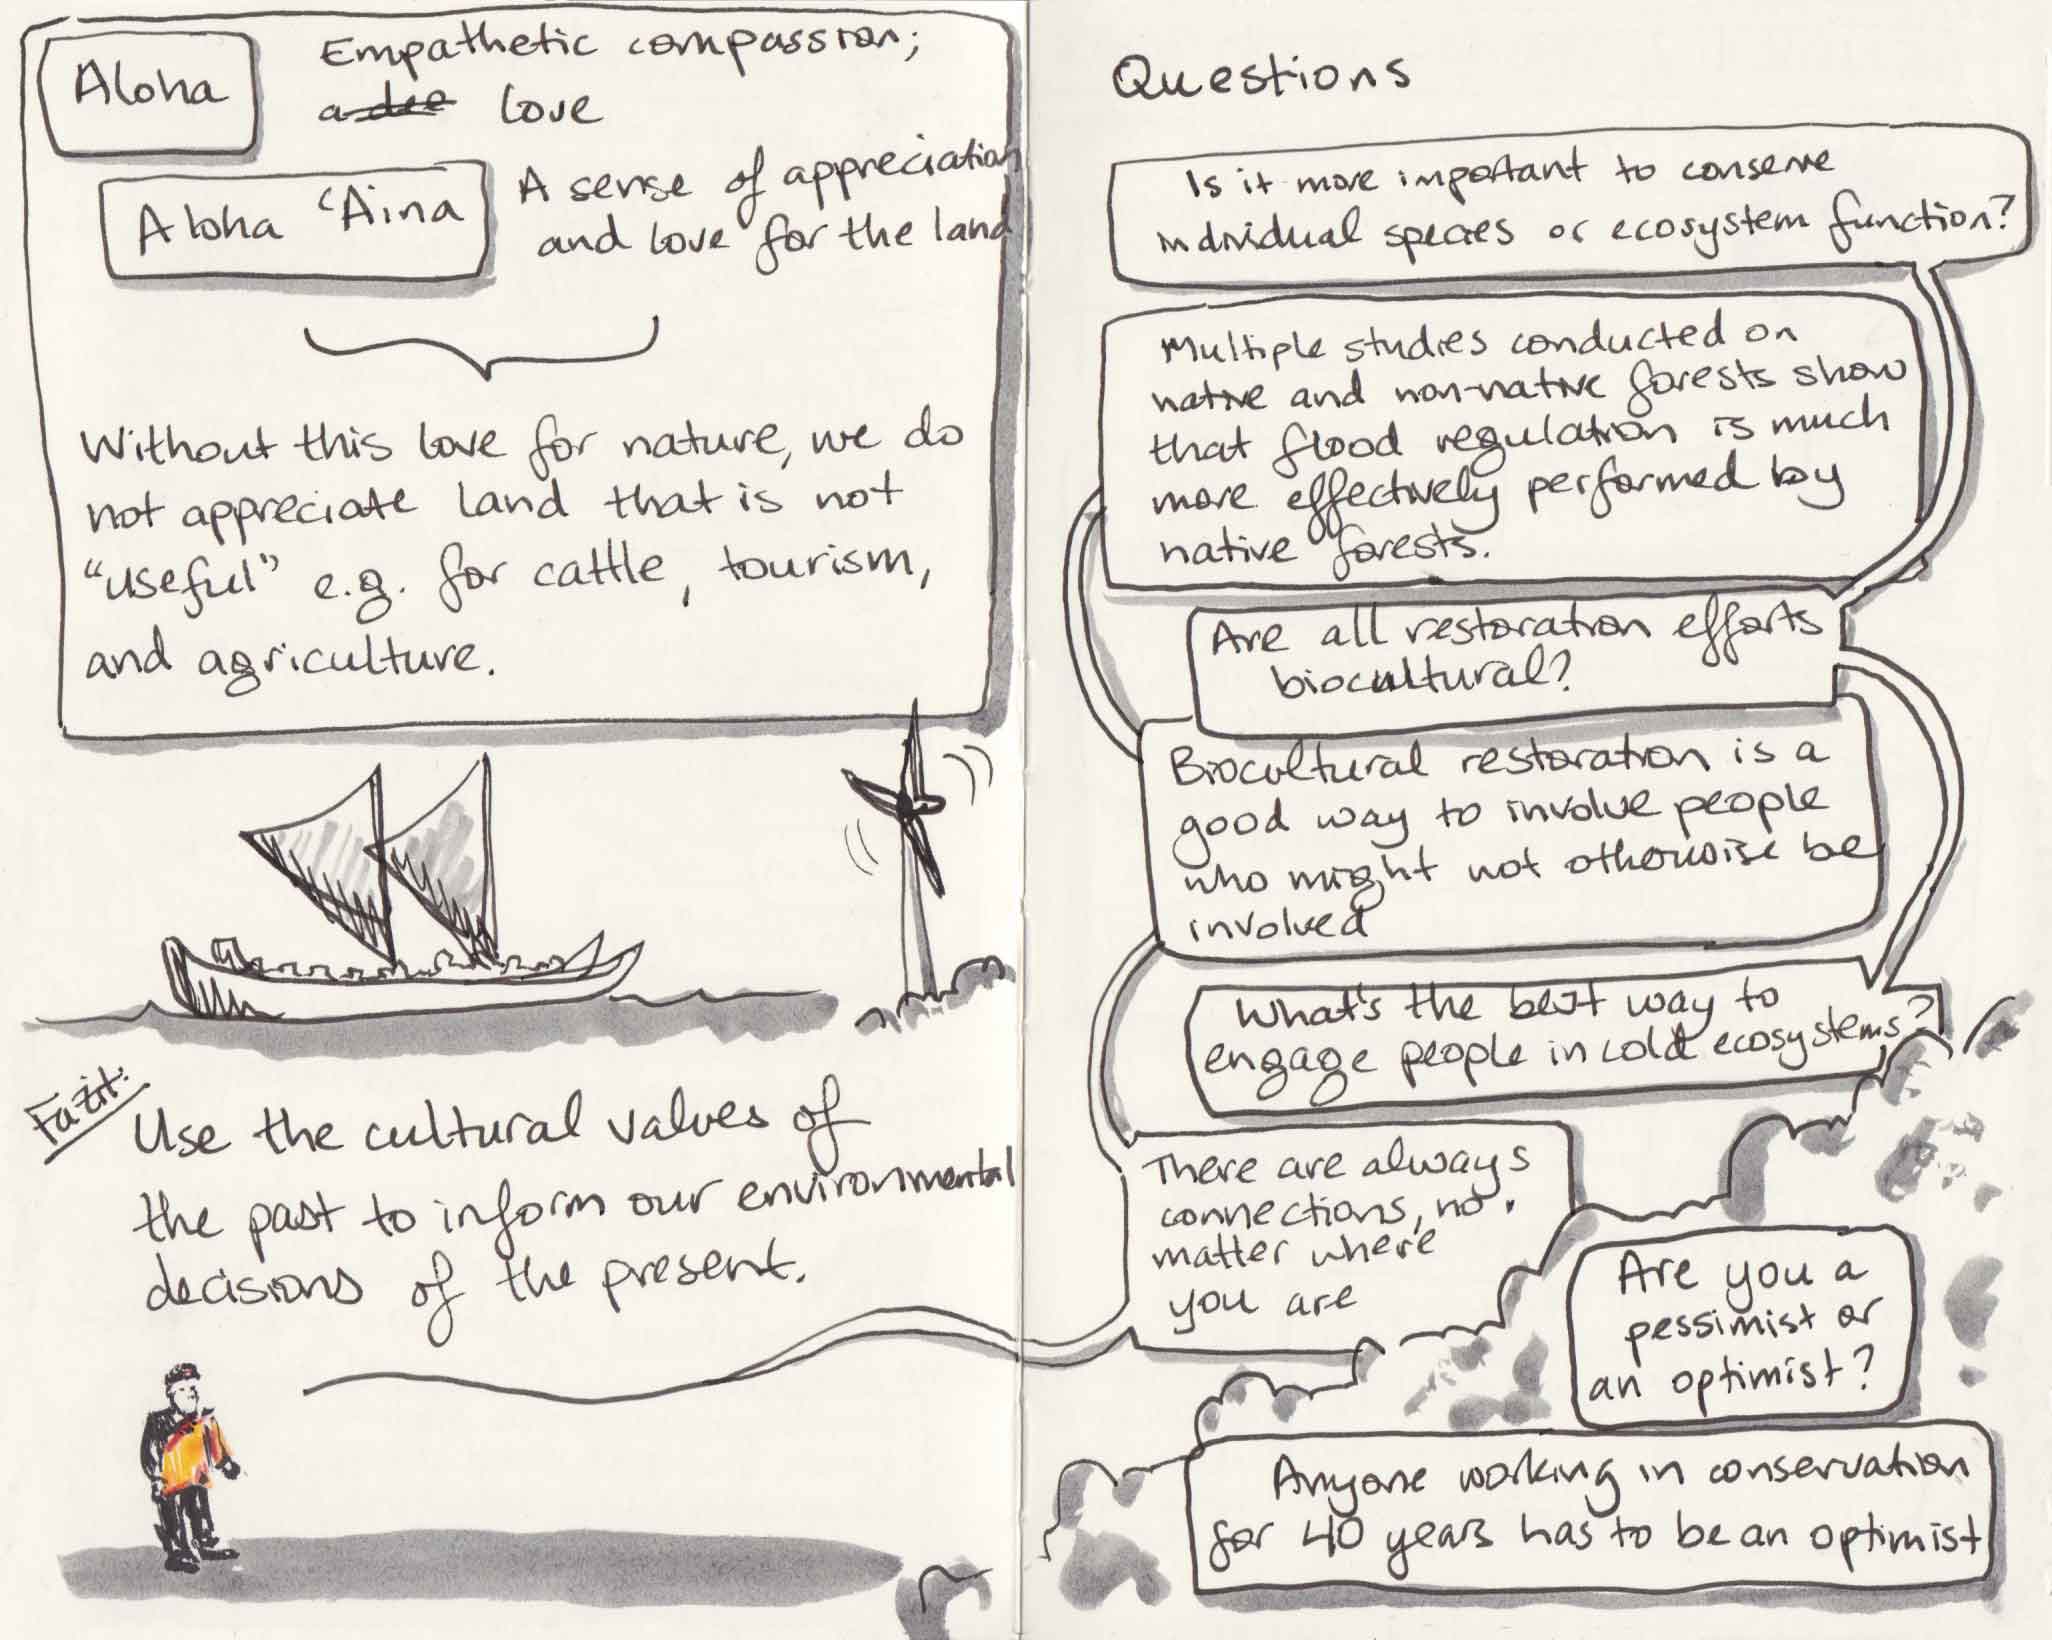 Aloha
Empathetic compassion;
love
Aloha 'Aina
A sense of appreciation
and love for the land
Without this love for nature, we do
not appreciate land that is not
"useful" e.g. for cattle, tourism,
and agriculture.
Fazit:
Use the cultural values of
the past to inform our environmental
decisions of the present.
Questions
Is it more important to conserve
individual species or ecosystem function?
Multiple studies conducted on
native and non-native forests show
that flood regulation is much
more effectively performed by
native forests.
Are all restoration efforts
biocultural?
Biocultural restoration is a
good way to involve people
who might not otherwise be
involved
What's the best way to
engage people in cold ecosystems?
There are always
connections, no
matter where
you are
Are you a
pessimist or
an optimist?
Anyone working in conservation
for 40 years has to be an optimist